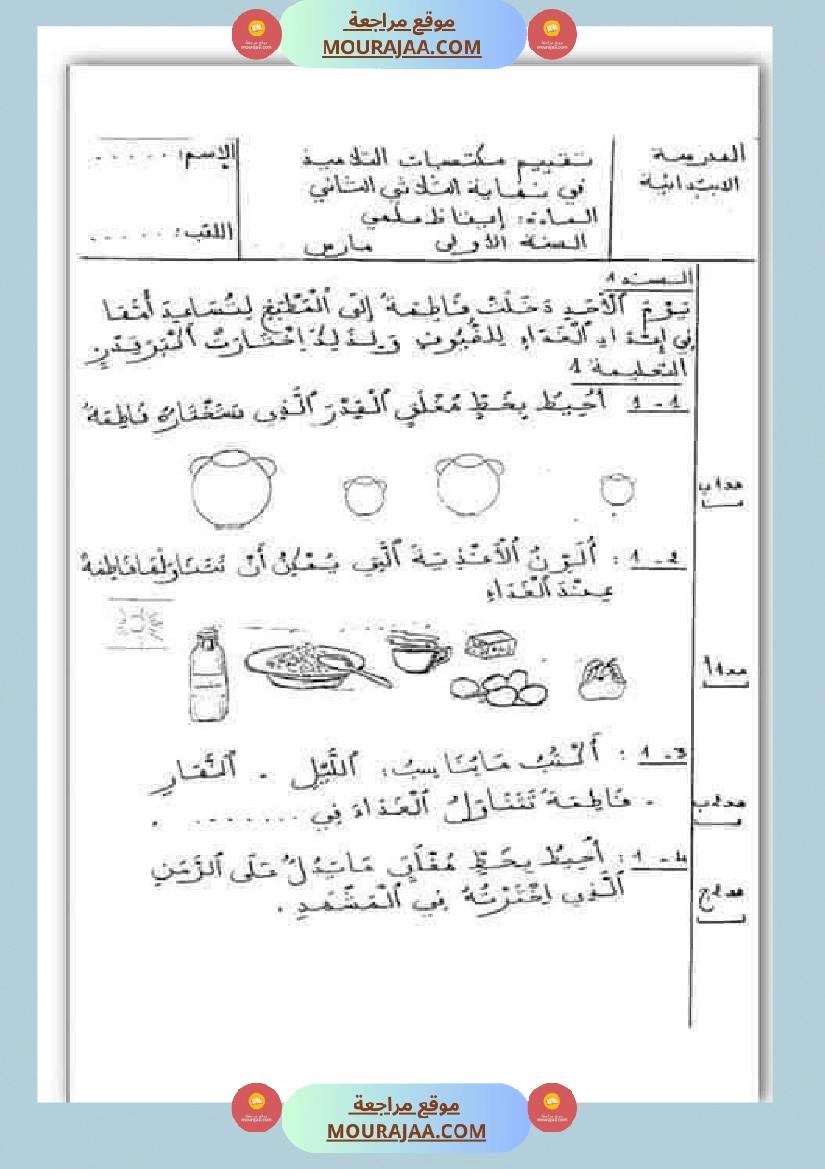 موقع مراجعة
MOURAJAA.COM
المدرسة
الابتدائية
تقييم مكتسبات التلاميذ
في نهاية الثلاثي الثاني
المادة: إيقاظ علمي
السنة الأولى مارس
الإسم: . . . . . .
اللقب: . . . . . .
السند 1
يَوْمَ اَلْأَحَدِ دَخَلَتْ فَاطِمَةُ إِلَى اَلْمَطْبَخِ لِتُسَاعِدَ أُمَّهَا
فِي إِعْدَادِ اَلْغَدَاءِ لِلضُّيُوفِ وَلِذَلِكَ اِخْتَارَتْ أَكْبَرَ قِدْرٍ
التعليمة 1
1 - 1 أُحِيطُ بِخَطٍّ مُغْلَقٍ اَلْقِدْرَ اَلَّذِي سَتَخْتَارُهُ فَاطِمَةُ
معـ1ـب
1 - 2 : أُلَوِّنُ اَلْأَغْذِيَةَ اَلَّتِي يُمْكِنُ أَنْ تَتَنَاوَلَهَا فَاطِمَةُ
عِنْدَ اَلْغَدَاءِ
معـ1ـأ
1 - 3 : أَكْتُبُ مَا يُنَاسِبُ: اَللَّيْلِ - اَلنَّهَارِ
- فَاطِمَةُ تَتَنَاوَلُ اَلْغَدَاءَ فِي . . . . . . . .
1 - 4 : أُحِيطُ بِخَطٍّ مُغْلَقٍ مَا يَدُلُّ عَلَى اَلزَّمَنِ
اَلَّذِي اِخْتَرْتُهُ فِي اَلْمَشْهَدِ .
موقع مراجعة
MOURAJAA.COM